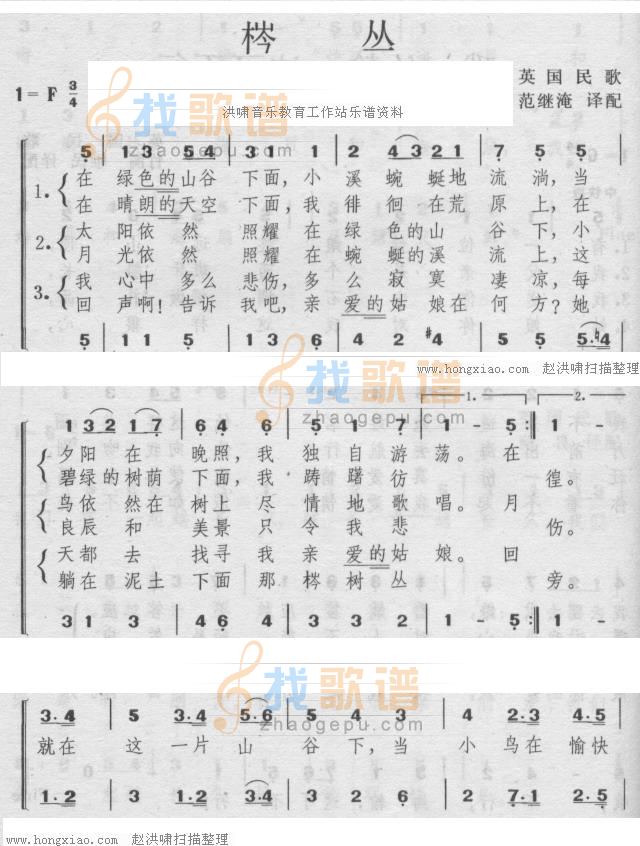 梣 丛
1=F 3/4
英国民歌
范继淹 译配
找歌谱
zhaogepu.com
洪啸音乐教育工作站乐谱资料
5 | 1 3 5 4 | 3 1 1 | 2 4 3 2 1 | 7 5 5 |
1. 在 绿色的山谷 下面，小 溪 蜿 蜒地 流 淌，当
在 晴朗的天空 下面，我 徘 徊 在荒 原 上，在
2. 太 阳依 然 照耀 在 绿 色的山 谷下，小
月 光依 然 照耀 在 蜿 蜒的溪 流上，这
3. 我 心中 多么 悲伤，多 么 寂 寞 凄凉，每
回 声啊！告诉 我吧，亲 爱的姑 娘在 何方？她
5 | 1 1 5 | 1 3 6 | 4 2 #4 | 5 5 5 4 |
www.hongxiao.com 赵洪啸扫描整理
找歌谱
zhaogepu.com
1. 2.
1 3 2 2 1 7 | 6 4 6 | 5 1 7 | 1 - 5 :| 1 - |
夕阳 在 晚照，我 独 自 游 荡。在
碧绿的树荫 下面，我 踌 躇 彷 徨。
鸟依 然在 树上 尽 情 地 歌 唱。月
良辰 和 美景 只 令 我 悲 伤。
天都 去 找寻 我 亲 爱的姑 娘。回
躺在 泥土 下面 那 梣 树 丛 旁。
3 1 3 | 4 4 2 | 3 3 2 | 1 - 5 :| 1 - |
找歌谱
zhaogepu.com
3·4 | 5 3·4 5·6 | 5 4 3 | 4 2·3 4·5 |
就在 这 一片 山 谷 下，当 小 鸟在 愉快
1·2 | 3 1·2 3·4 | 3 2 1 | 2 7·1 2·5 |
www.hongxiao.com 赵洪啸扫描整理